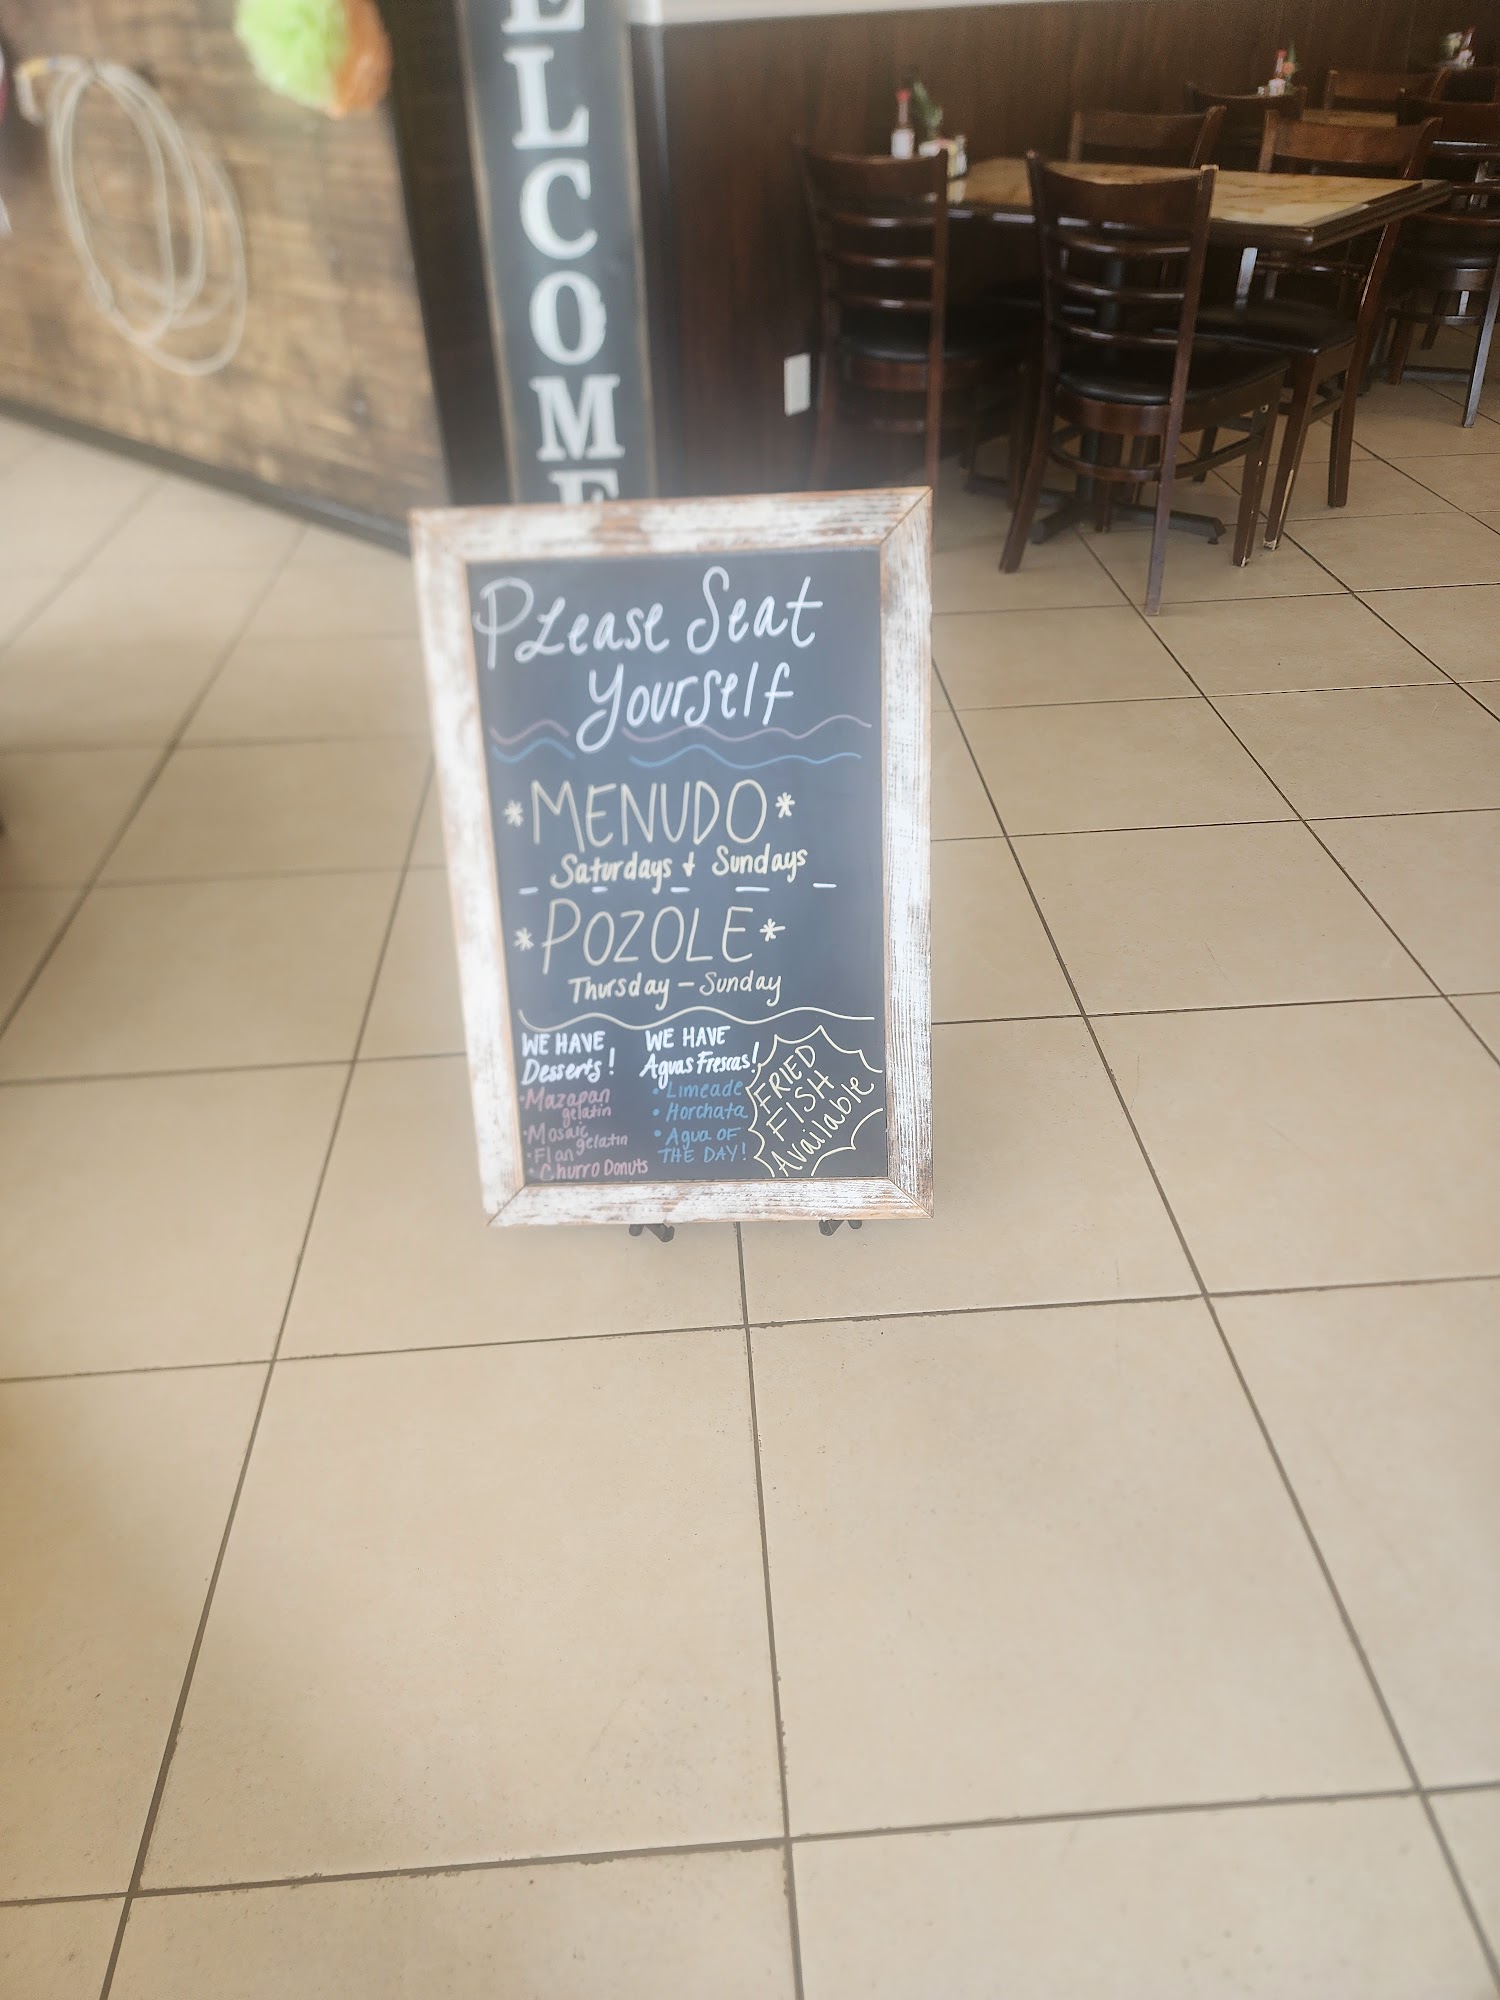 ELCOME
PLease Seat
Yourself
*MENUDO*
Saturdays & Sundays
*POZOLE*
Thursday - Sunday
WE HAVE
Desserts!
• Mazapan
gelatin
• Mosaic
gelatin
• Flan
• Churro Donuts
WE HAVE
Aguas Frescas!
• Limeade
• Horchata
• Agua OF
THE DAY!
FRIED
FISH
Available